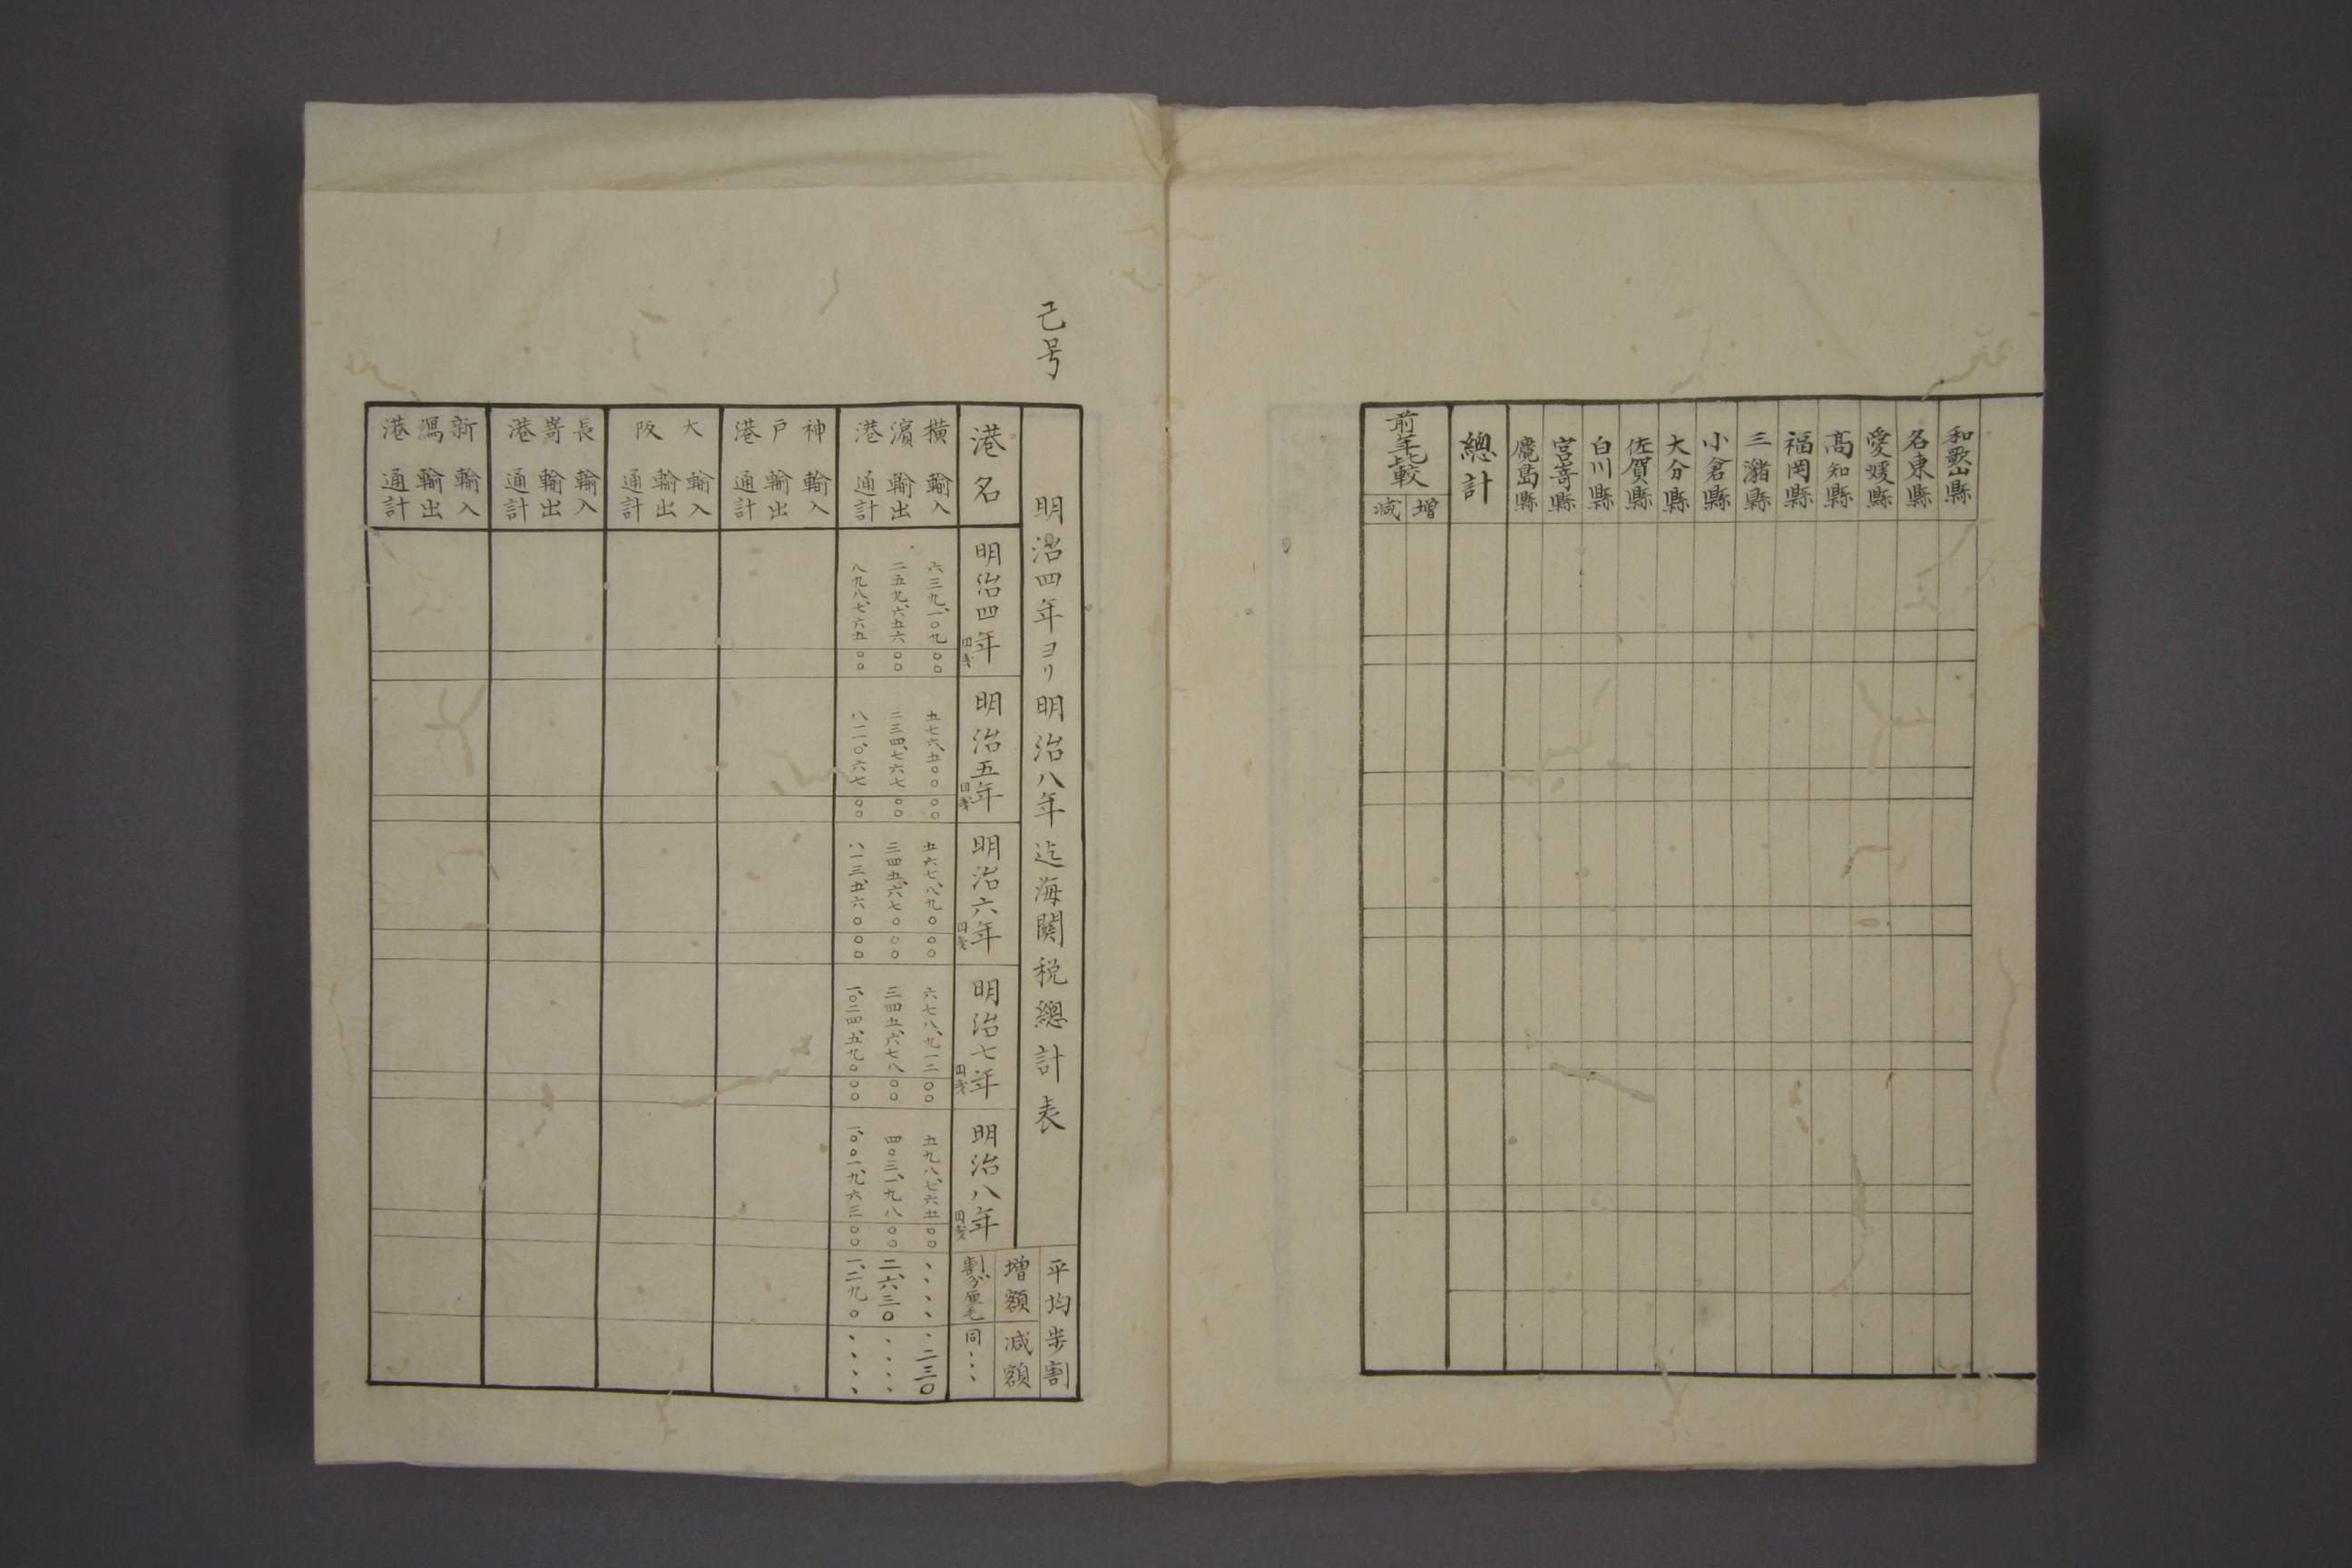 和歌山縣
名東縣
愛媛縣
高知縣
福岡縣
三潴縣
小倉縣
大分縣
佐賀縣
白川縣
宮嵜縣
麑島縣
總計
前年比較
增
減
己号
明治四年ヨリ明治八年迄海関税總計表
平均步割
增額
減額
港名
明治四年
明治五年
明治六年
明治七年
明治八年
割分厘毛
同、、、
橫濵港
輸入
六三九、一〇九〇〇
五七六、五〇〇〇〇
五六七、八九〇〇〇
六七八、九一二〇〇
五九八、七六五〇〇
、、、、
、二三〇
輸出
二五九、六五六〇〇
二三四、七六七〇〇
三四五、六七〇〇〇
三四五、六七八〇〇
四〇三、一九八〇〇
二、六三〇
、、、、
通計
八九八、七六五〇〇
八一一、〇六七〇〇
八一三、五六〇〇〇
一、〇二四、五九〇〇〇
一、〇〇一、九六三〇〇
一、二九〇
、、、、
神戶港
輸入
輸出
通計
大阪
輸入
輸出
通計
長嵜港
輸入
輸出
通計
新潟港
輸入
輸出
通計